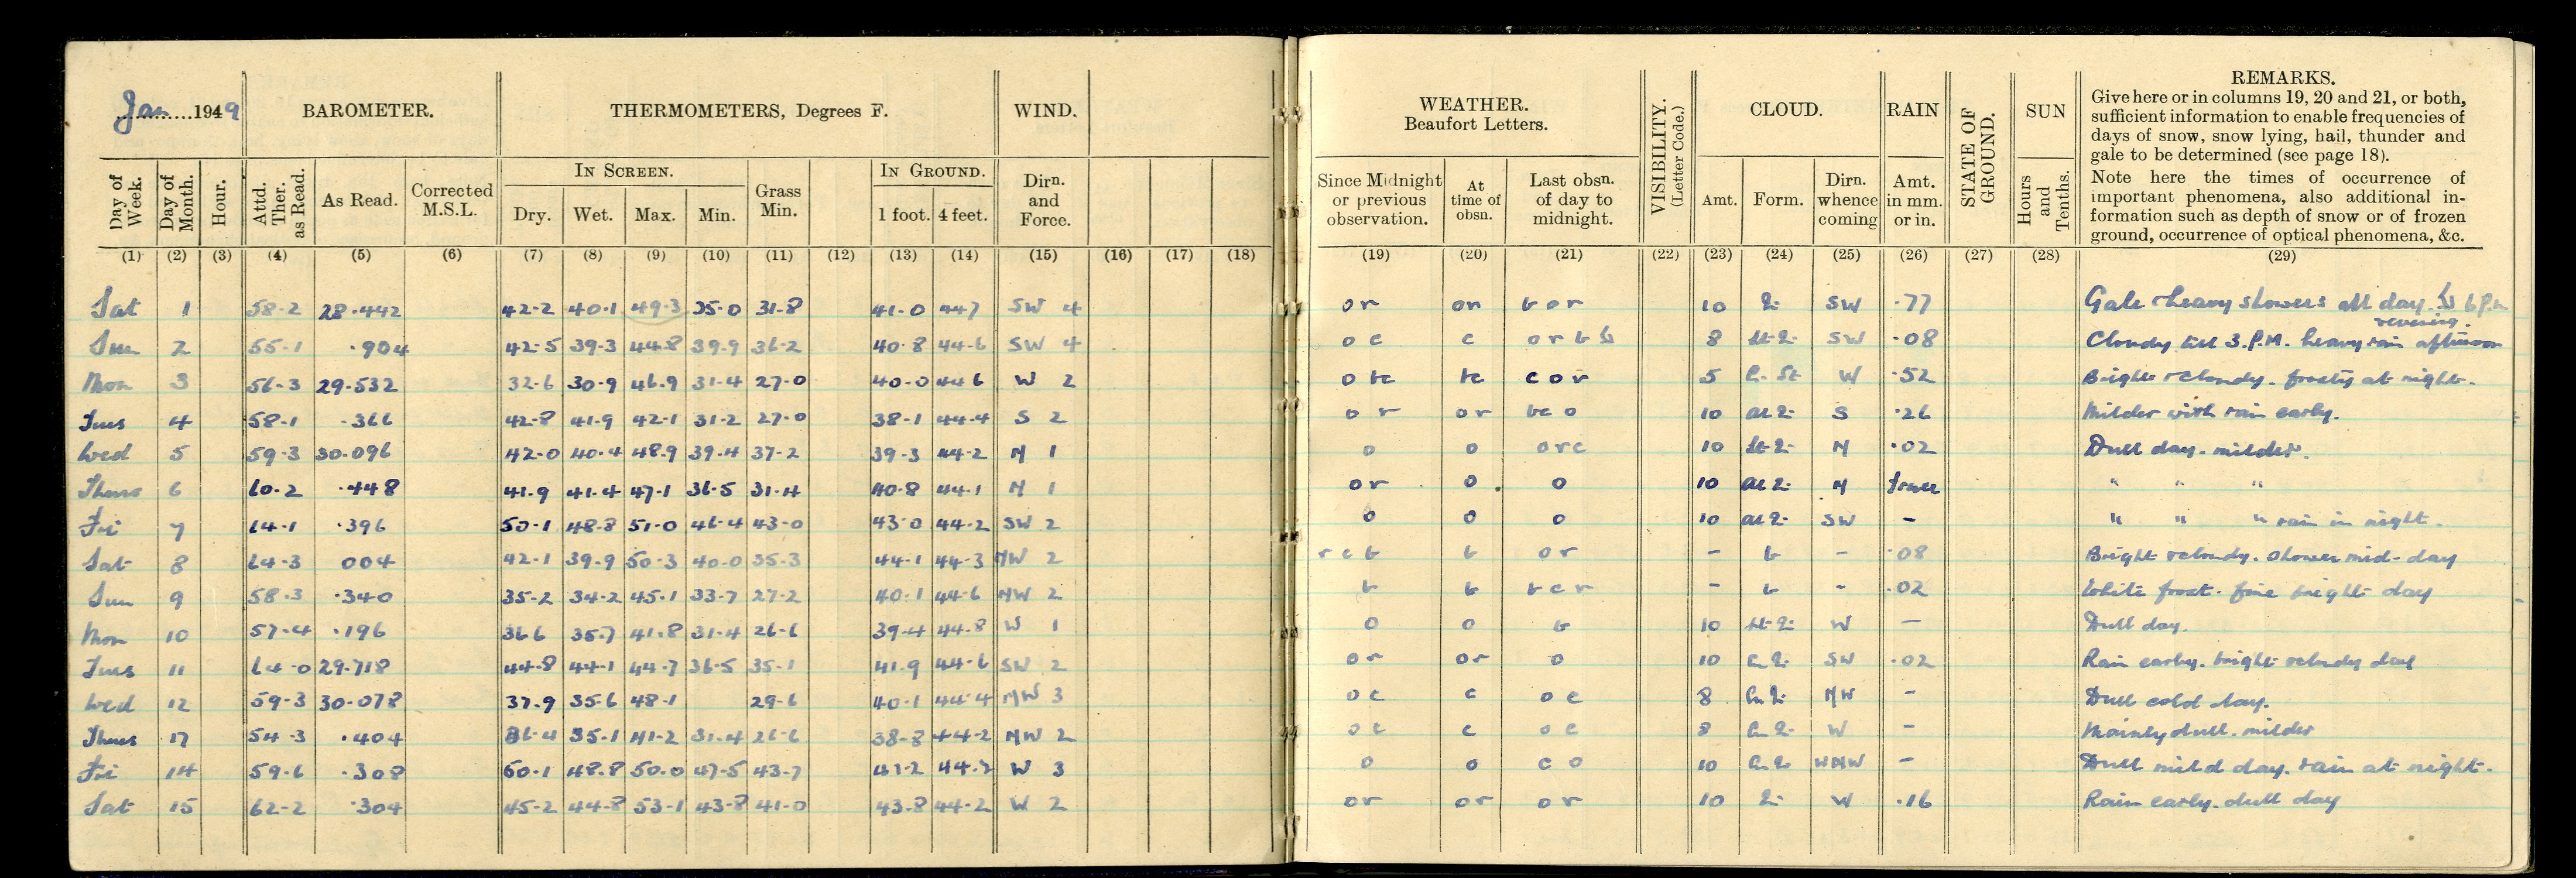 Jan 1949 BAROMETER. THERMOMETERS, Degrees F. WIND.
Day of Week. Day of Month. Hour. Attd. Ther. as Read. As Read. Corrected M.S.L. IN SCREEN. Dry. Wet. Max. Min. Grass Min. IN GROUND. 1 foot. 4 feet. Dirn. and Force.
(1) (2) (3) (4) (5) (6) (7) (8) (9) (10) (11) (12) (13) (14) (15) (16) (17) (18)
Sat 1 58.2 28.442 42.2 40.1 49.3 35.0 31.8 41.0 447 SW 4
Sun 2 55.1 .904 42.5 39.3 44.8 39.9 36.2 40.8 44.6 SW 4
Mon 3 56.3 29.532 32.6 30.9 46.9 31.4 27.0 40.0 44 6 W 2
Tues 4 58.1 .366 42.8 41.9 42.1 31.2 27.0 38.1 44.4 S 2
Wed 5 59.3 30.096 42.0 40.4 48.9 39.4 37.2 39.3 44.2 N 1
Thurs 6 60.2 .448 41.9 41.4 47.1 36.5 31.4 40.8 44.1 N 1
Fri 7 64.1 .396 50.1 48.8 51.0 46.4 43.0 43.0 44.2 SW 2
Sat 8 64.3 004 42.1 39.9 50.3 40.0 35.3 44.1 44.3 NW 2
Sun 9 58.3 .340 35.2 34.2 45.1 33.7 27.2 40.1 44.6 NW 2
Mon 10 57.4 .196 36 6 35.7 41.8 31.4 26.6 39.4 44.8 W 1
Tues 11 64.0 29.718 44.8 44.1 44.7 36.5 35.1 41.9 44.6 SW 2
Wed 12 59.3 30.078 37.9 35.6 48.1 29.6 40.1 44.4 NW 3
Thurs 54.3 .404 36.4 35.1 41.2 31.4 26.6 38.8 44.2 NW 2
Fri 14 59.6 .308 50.1 48.8 50.0 47.5 43.7 44.2 W 3
Sat 15 62.2 .304 45.2 44.8 53.1 43.8 41.0 43.8 44.2 W 2
WEATHER. Beaufort Letters. VISIBILITY. (Letter Code.) CLOUD. RAIN STATE OF GROUND. SUN REMARKS.
Since Midnight or previous observation. At time of obsn. Last obsn. of day to midnight. Amt. Form. Dirn. whence coming Amt. in mm. or in. Hours and Tenths.
Give here or in columns 19, 20 and 21, or both,
sufficient information to enable frequencies of
days of snow, snow lying, hail, thunder and
gale to be determined (see page 18).
Note here the times of occurrence of
important phenomena, also additional in-
formation such as depth of snow or of frozen
ground, occurrence of optical phenomena, &c.
(19) (20) (21) (22) (23) (24) (25) (26) (27) (28) (29)
or or b or 10 SW .77 Gale & heavy showers all day. 6 p.m
evening.
o c c 8 SW .08 Cloudy till 3.P.M. heavy rain afternoon
o bc bc c o r 5 W .52 Bright & cloudy. frosty at night.
o r or bc o 10 S .26 Milder with rain early.
o o orc 10 N .02 Dull day. milder.
or o o 10 N " " "
o o o 10 SW - " " " rain in night.
r c b b or - b - .08 Bright & cloudy. shower mid-day
b b b c r - b - .02 White frost. fine bright day
o o b 10 W - Dull day.
or or o 10 SW .02 Rain early. bright & cloudy day
o c c o c 8 NW - Dull cold day.
o c c o c 8 W - Mainly dull. milder
o o c o 10 WNW - Dull mild day. rain at night.
or or or 10 W .16 Rain early. dull day